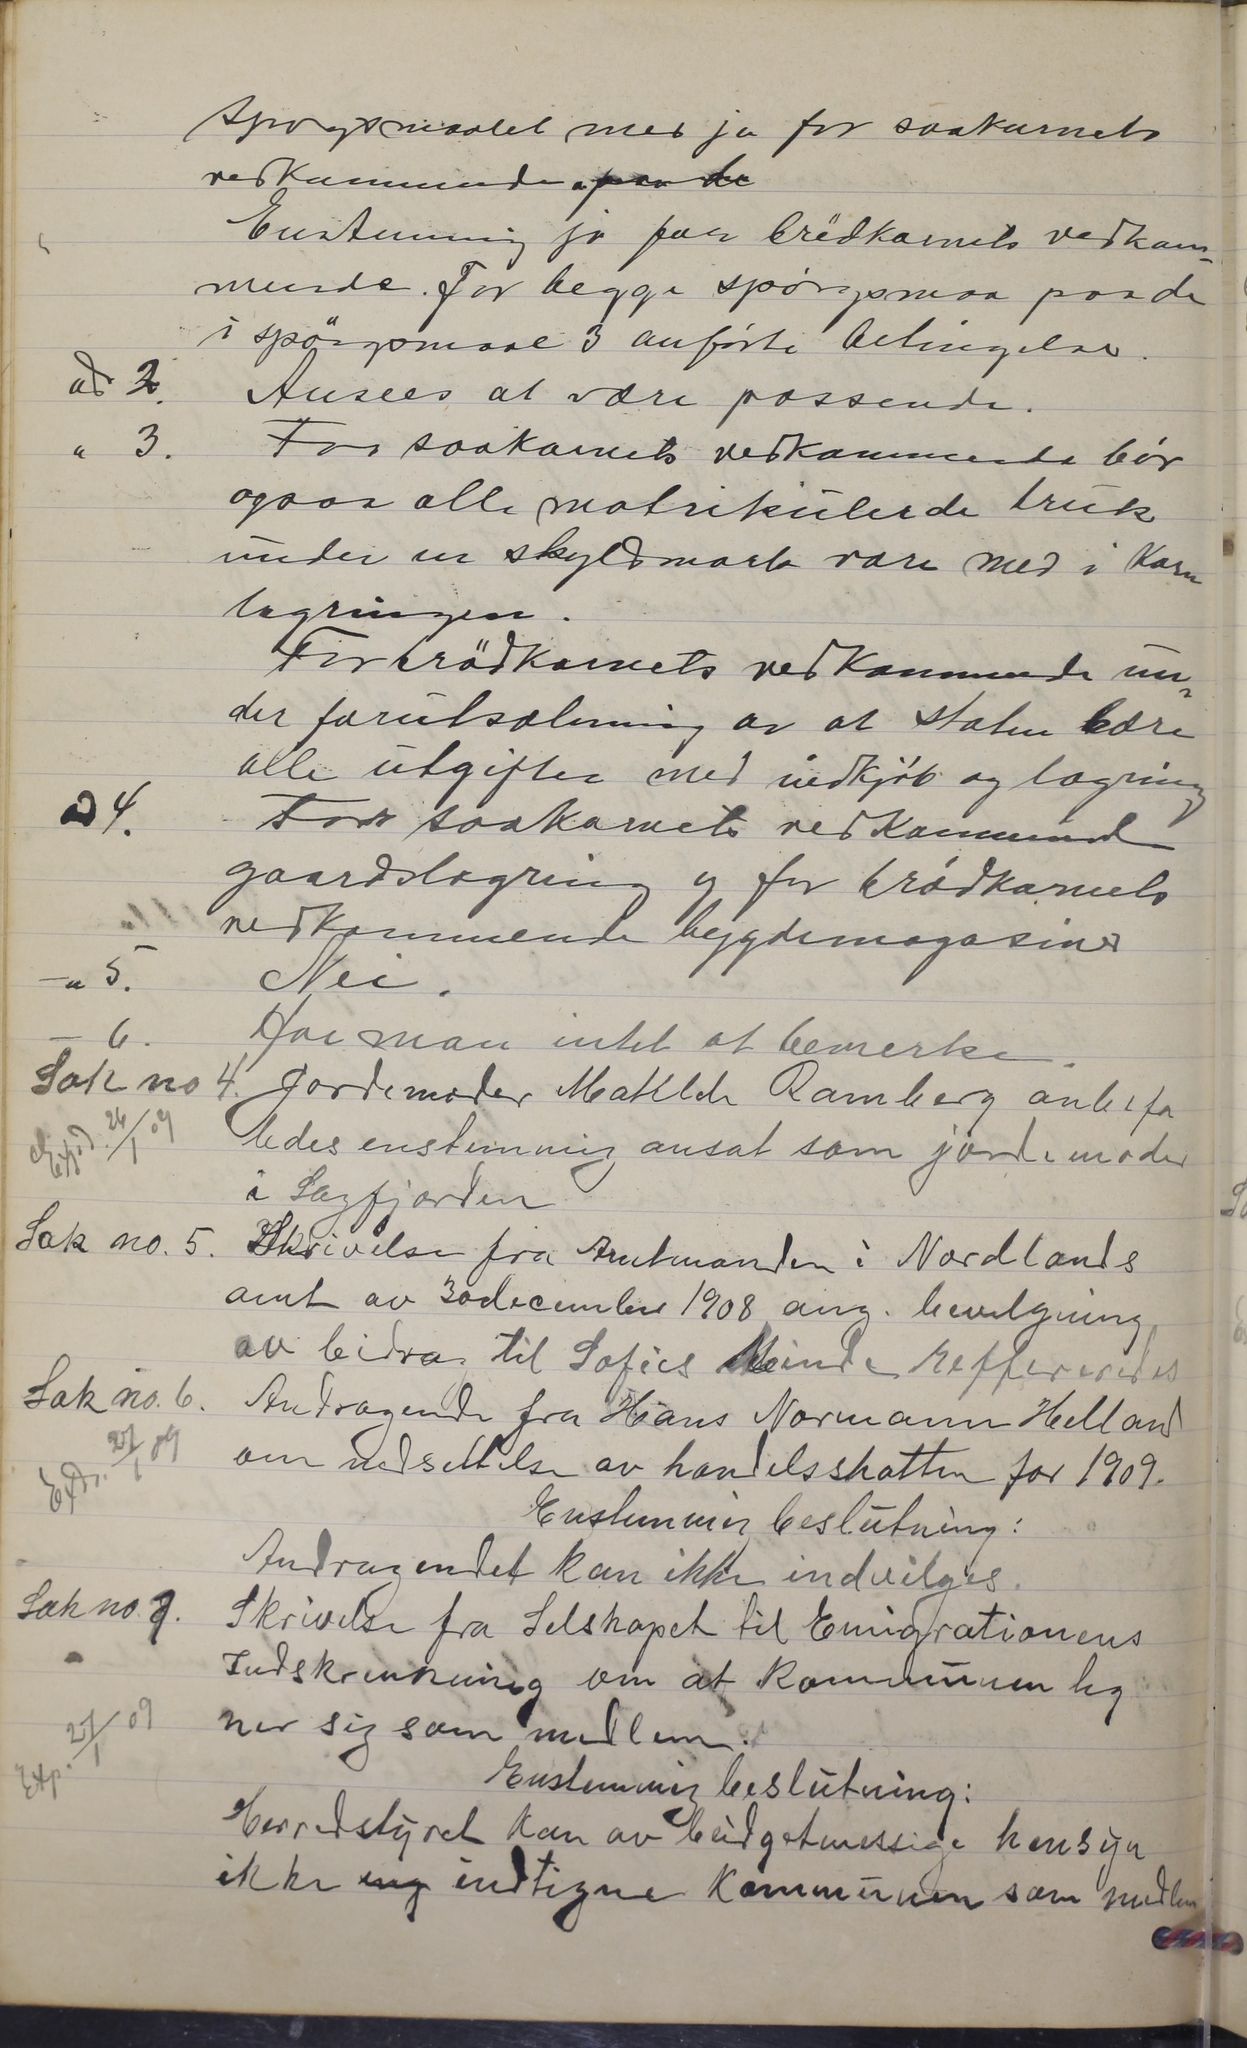 spørgsmaalet med ja for saakornets
vedkommende. paa de
Enstemmig ja for brödkornets vedkom-
mende. For begge spörgsmaa paa de
i spörgsmaal 3 anförte betingelser.
ad 2. Ansees at være passende.
" 3. For saakornets vedkommende bör
ogsaa alle matrikulerde bruk
under en skyldmark være med i korn
lagringen.
For brödkornets vedkommende un-
der forutsætning av at staten bære
alle utgifter med indkjöb og lagring
ad 4. For saakornets vedkommend
gaardslagring og for brödkornets
vedkommende bygdemagasiner
-" 5. Nei.
- 6. Har man intet at bemerke.
Sak no 4. Jordemoder Matilde Ramberg anbefa
Exp.d. 26/1 09 ledes enstemmig ansat som jordemoder
i Sagfjorden
Sak no. 5. Skrivelse fra Amtmanden i Nordlands
amt av 30 december 1908 ang. bevilgning
av bidrag til Sofies Minde reffereredes
Sak no. 6. Andragende fra Hans Normann Helland
Expd. 27/1 09 om nedsettelse av handelsskatten for 1909.
Enstemmig beslutning:
Andragendet kan ikke indvilges.
Sak no. 7. Skrivelse fra Selskapet til Emigrationens
Indskrenkning om at kommunen teg
Exp. 27/1 09 ner sig som medlem.
Enstemmig beslutning:
Herredstyret kan av budgetmessige hensyn
ikke ing indtegne kommunen som medlem